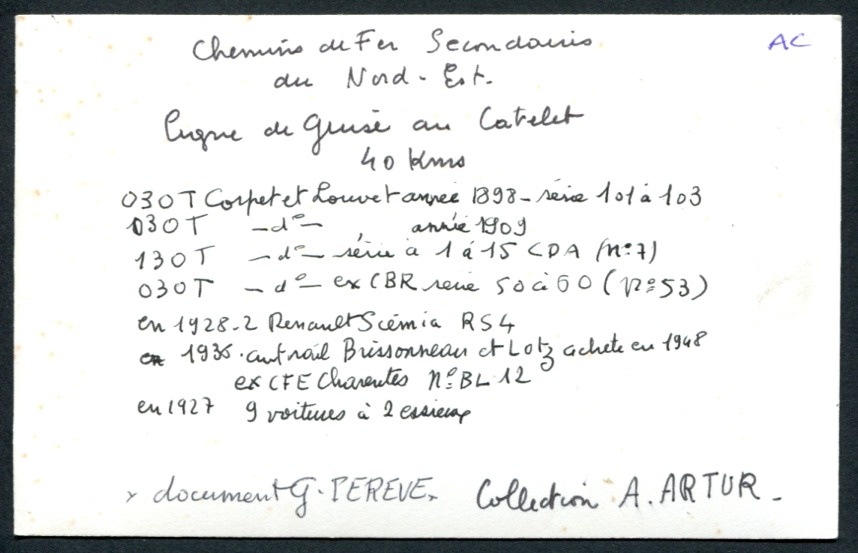 Chemins de Fer Secondaires
AC
du Nord-Est.
Ligne de Guise au Catelet
40 Kms
030T Corpet et Louvet année 1898 - série 101 à 103
030T -d°- année 1909
130T -d°- série à 1 à 15 CDA (n°7)
030T -d°- ex CBR série 50 à 60 (N°53)
en 1928-2 Renault Scémia RS4
en 1936. autorail Brissonneau et Lotz acheté en 1948
ex CFE Charentes N° BL 12
en 1927 9 voitures à 2 essieux
document G. PEREVE. Collection A. ARTUR -